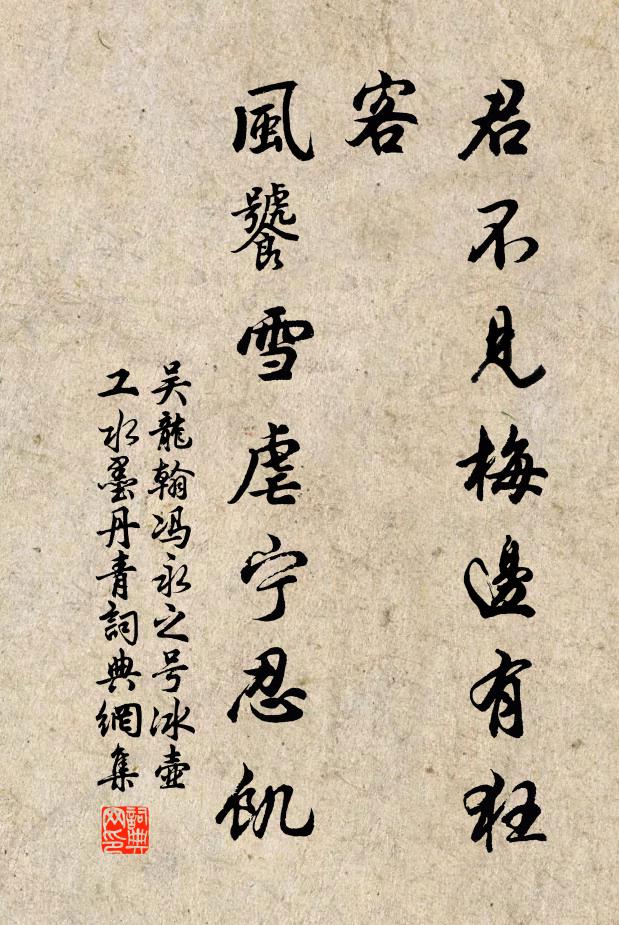 君不見梅邊有狂
客
風饕雪虐宁忍飢
吴龍翰馮永之号冰壺
工水墨丹青詞典網集
詞典网印